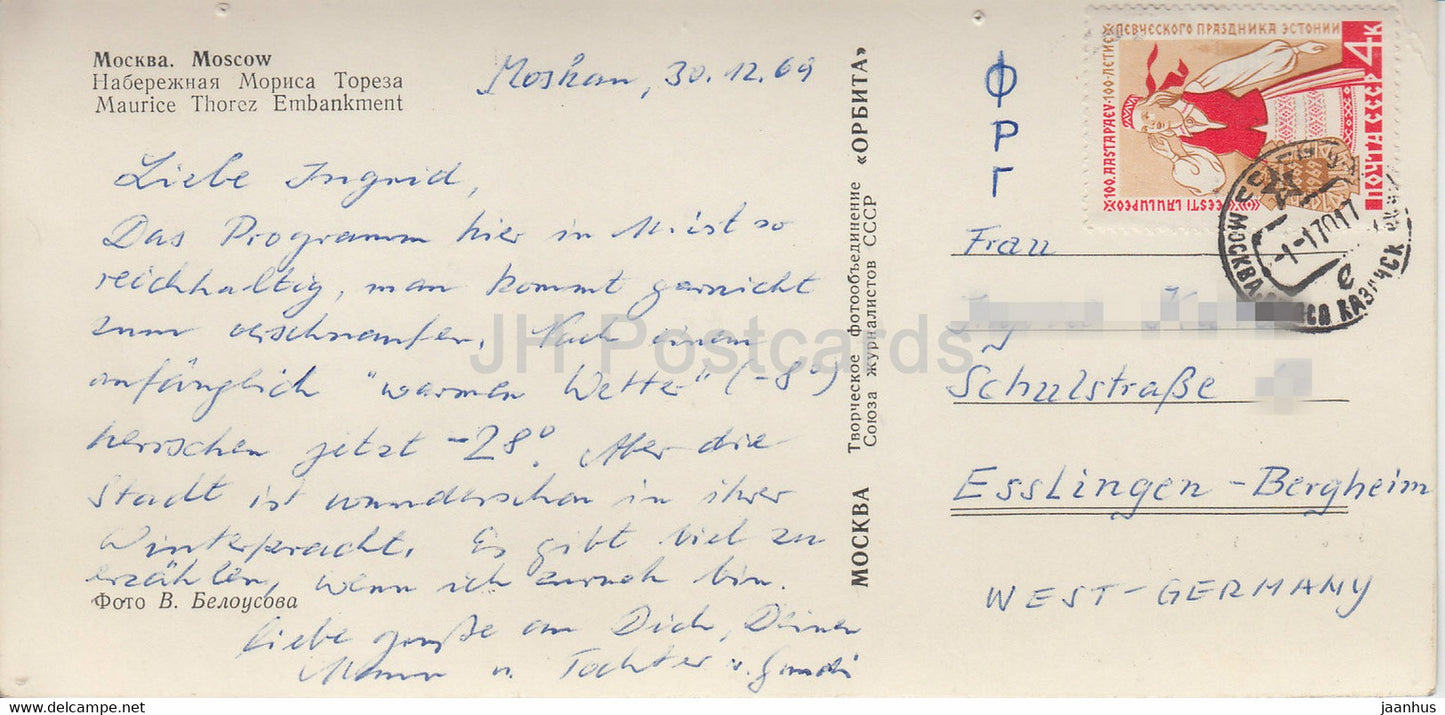 Москва. Moscow
Набережная Мориса Тореза
Maurice Thorez Embankment
Moskau, 30.12.69
Liebe Ingrid,
Das Programm hier in M. ist so
reichhaltig, man kommt garnicht
zum verschnaufen. Nach einem
anfänglich "warmen Wetter" (-8°)
herrschen jetzt -28°. Aber die
Stadt ist wunderschön in ihrer
Winterpracht. Es gibt viel zu
erzählen, wenn ich zurück bin.
Фото В. Белоусова
Liebe Grüße an Dich, Deinen
Mann u. Tochter v.
МОСКВА
Творческое фотообъединение
Союза журналистов СССР
«ОРБИТА»
ФРГ
Frau
Schulstraße
Esslingen-Bergheim
WEST-GERMANY
100-ЛЕТИЕ ПЕВЧЕСКОГО ПРАЗДНИКА ЭСТОНИИ
100. AASTAPÄEV
EESTI LAULUPEO
1969
4К
ПОЧТА СССР
МОСКВА
-1-17017
е
JH Postcards
jaanhus